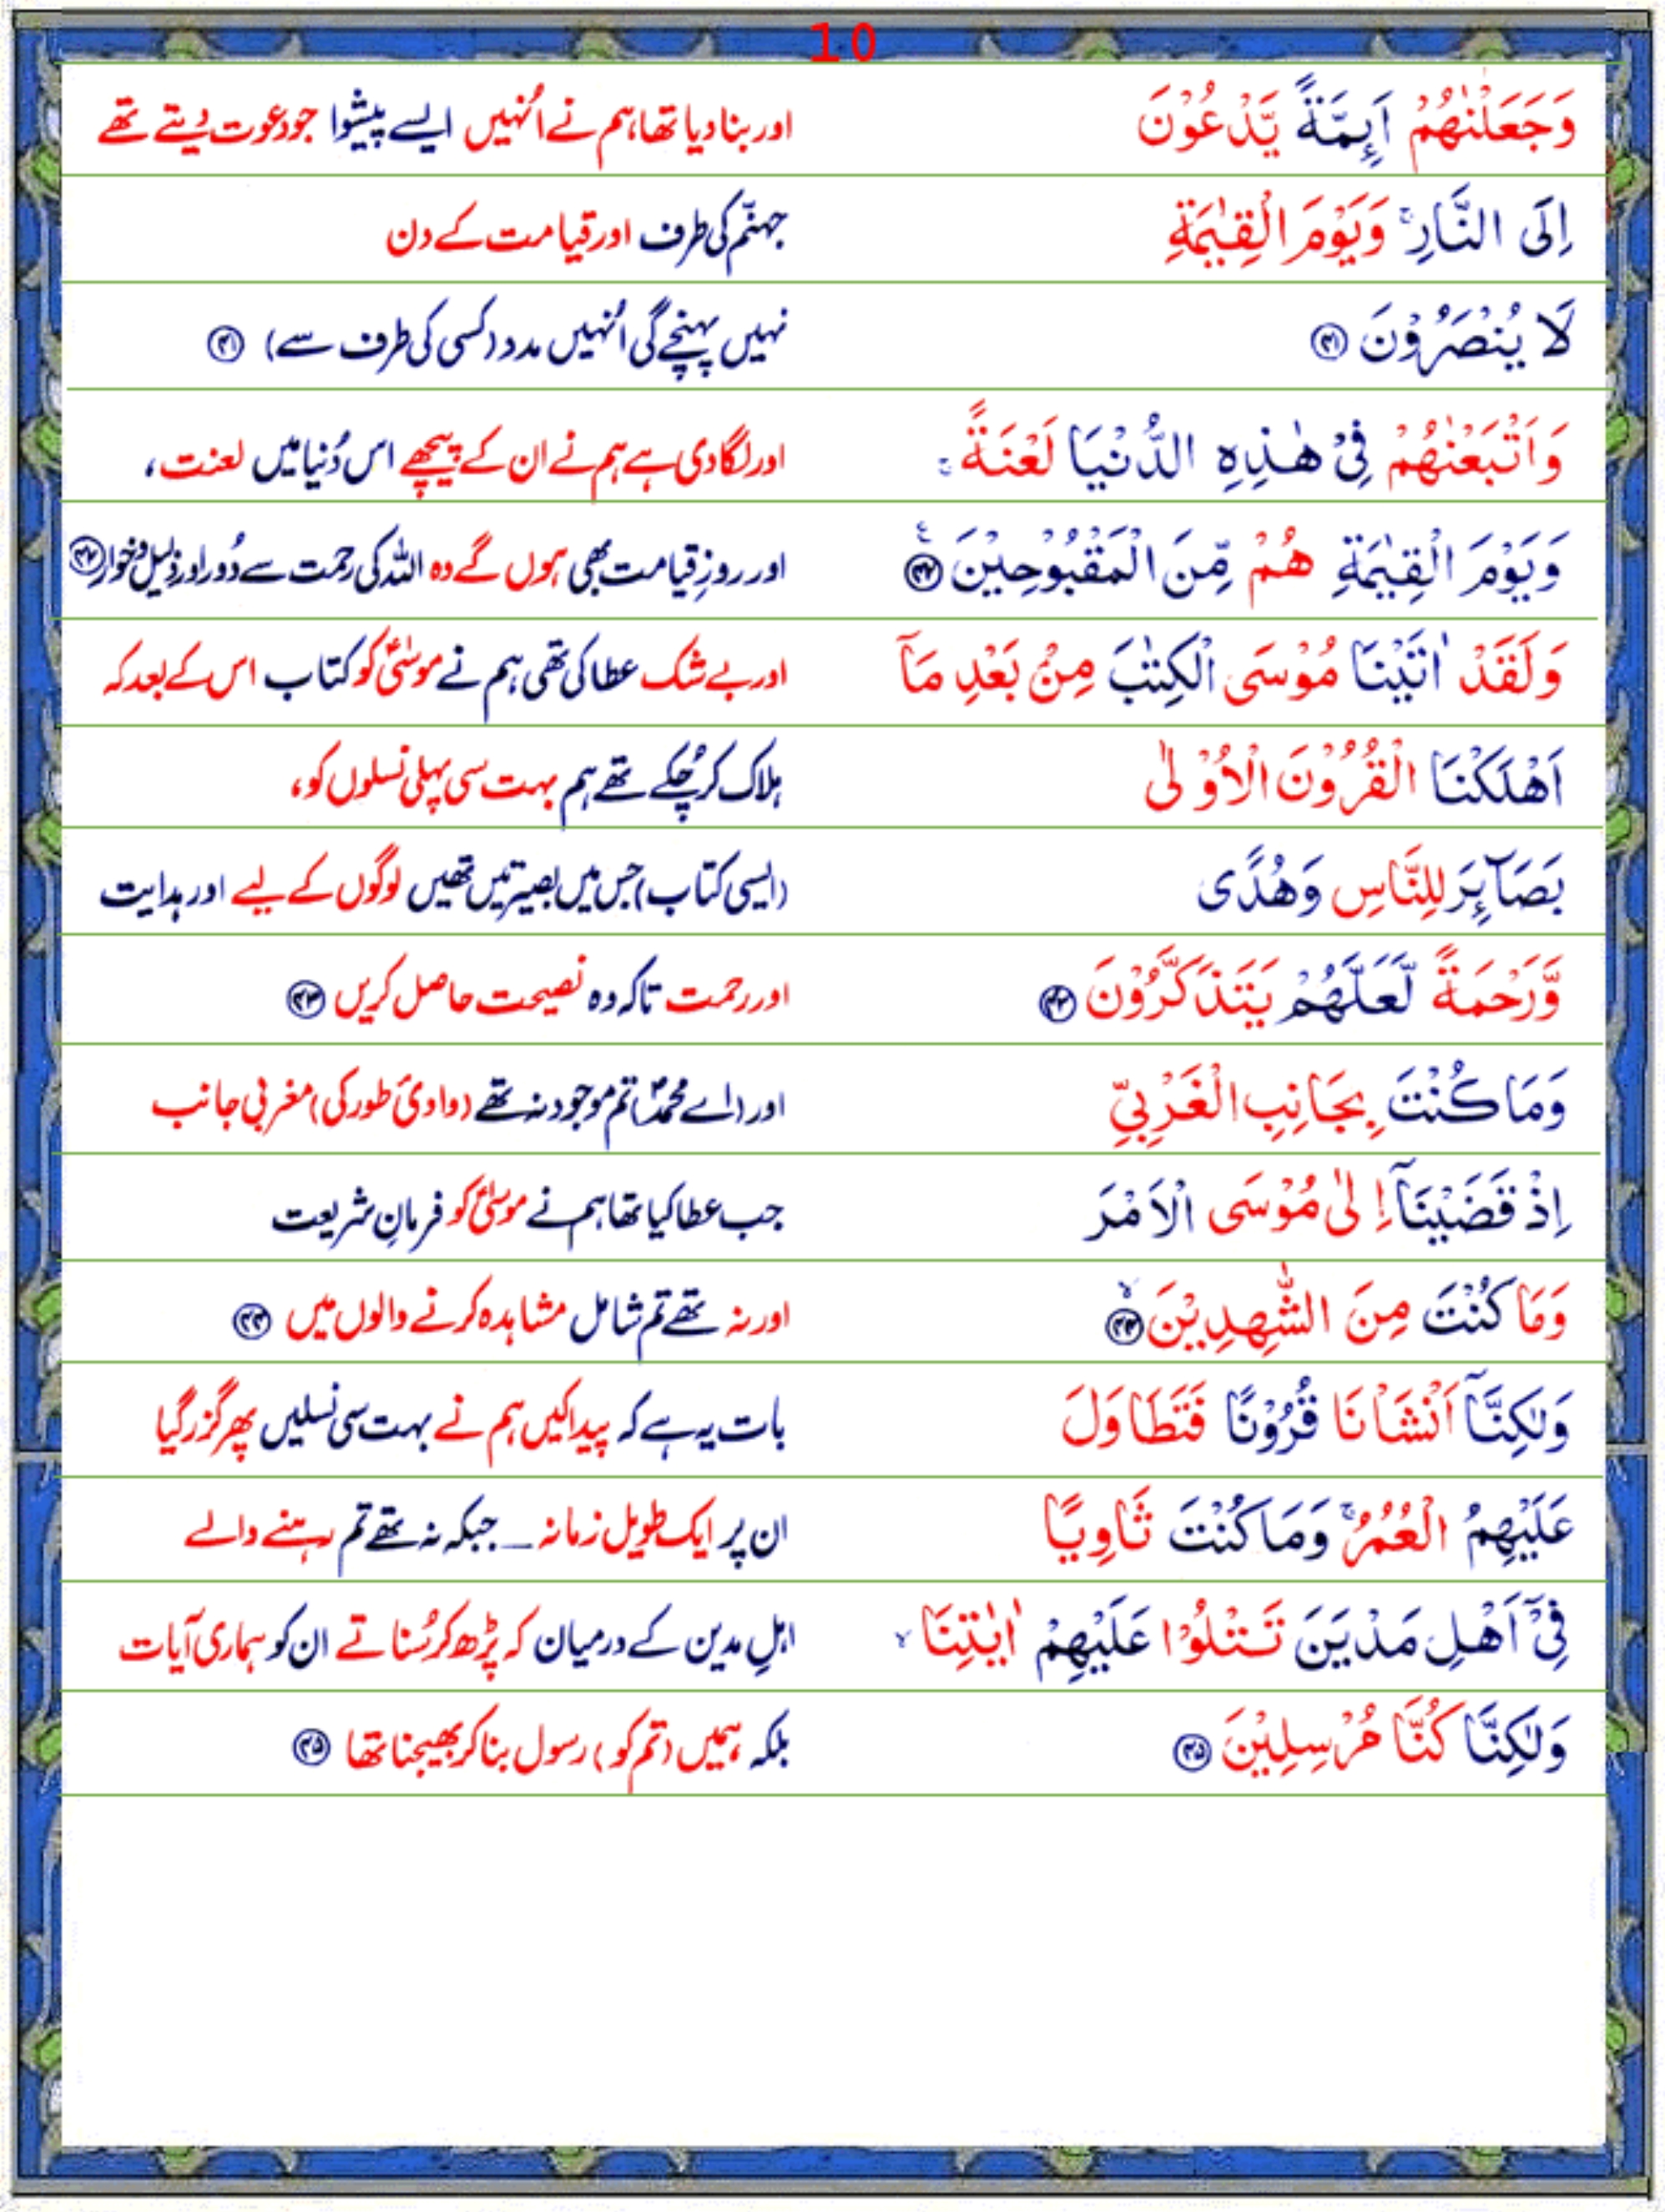 10
وَجَعَلْنٰهُمْ اَىِٕمَّةً يَّدْعُوْنَ اور بنا دیا تھا ہم نے اُنہیں ایسے پیشوا جو دعوت دیتے تھے
اِلَى النَّارِ ۚ وَيَوْمَ الْقِيٰمَةِ جہنّم کی طرف اور قیامت کے دن
لَا يُنْصَرُوْنَ ﴿۴۱﴾ نہیں پہنچے گی اُنہیں مدد (کسی کی طرف سے) ﴿۴۱﴾
وَاَتْبَعْنٰهُمْ فِيْ هٰذِهِ الدُّنْيَا لَعْنَةً ۚ اور لگا دی ہے ہم نے ان کے پیچھے اس دُنیا میں لعنت،
وَيَوْمَ الْقِيٰمَةِ هُمْ مِّنَ الْمَقْبُوْحِيْنَ ﴿۴۲﴾ ع اور روزِ قیامت بھی ہوں گے وہ اللہ کی رحمت سے دُور اور ذلیل و خوار ﴿۴۲﴾
وَلَقَدْ اٰتَيْنَا مُوْسَى الْكِتٰبَ مِنْۢ بَعْدِ مَآ اور بے شک عطا کی تھی ہم نے موسٰیؑ کو کتاب اس کے بعد کہ
اَهْلَكْنَا الْقُرُوْنَ الْاُوْلٰى ہلاک کر چُکے تھے ہم بہت سی پہلی نسلوں کو،
بَصَآىِٕرَ لِلنَّاسِ وَهُدًى (ایسی کتاب) جس میں بصیرتیں تھیں لوگوں کے لیے اور ہدایت
وَّرَحْمَةً لَّعَلَّهُمْ يَتَذَكَّرُوْنَ ﴿۴۳﴾ اور رحمت تاکہ وہ نصیحت حاصل کریں ﴿۴۳﴾
وَمَا كُنْتَ بِجَانِبِ الْغَرْبِيِّ اور (اے محمدؐ) تم موجود نہ تھے (وادیٔ طور کی) مغربی جانب
اِذْ قَضَيْنَآ اِلٰى مُوْسَى الْاَمْرَ جب عطا کیا تھا ہم نے موسٰیؑ کو فرمانِ شریعت
وَمَا كُنْتَ مِنَ الشّٰهِدِيْنَ ﴿۴۴﴾ ۙ اور نہ تھے تم شامل مشاہدہ کرنے والوں میں ﴿۴۴﴾
وَلٰكِنَّآ اَنْشَاْنَا قُرُوْنًا فَتَطَاوَلَ بات یہ ہے کہ پیدا کیں ہم نے بہت سی نسلیں پھر گزر گیا
عَلَيْهِمُ الْعُمُرُ ۚ وَمَا كُنْتَ ثَاوِيًا ان پر ایک طویل زمانہ ۔ جبکہ نہ تھے تم رہنے والے
فِيْٓ اَهْلِ مَدْيَنَ تَتْلُوْا عَلَيْهِمْ اٰيٰتِنَا ۙ اہلِ مدین کے درمیان کہ پڑھ کر سُناتے ان کو ہماری آیات
وَلٰكِنَّا كُنَّا مُرْسِلِيْنَ ﴿۴۵﴾ بلکہ ہمیں (تم کو) رسول بنا کر بھیجنا تھا ﴿۴۵﴾